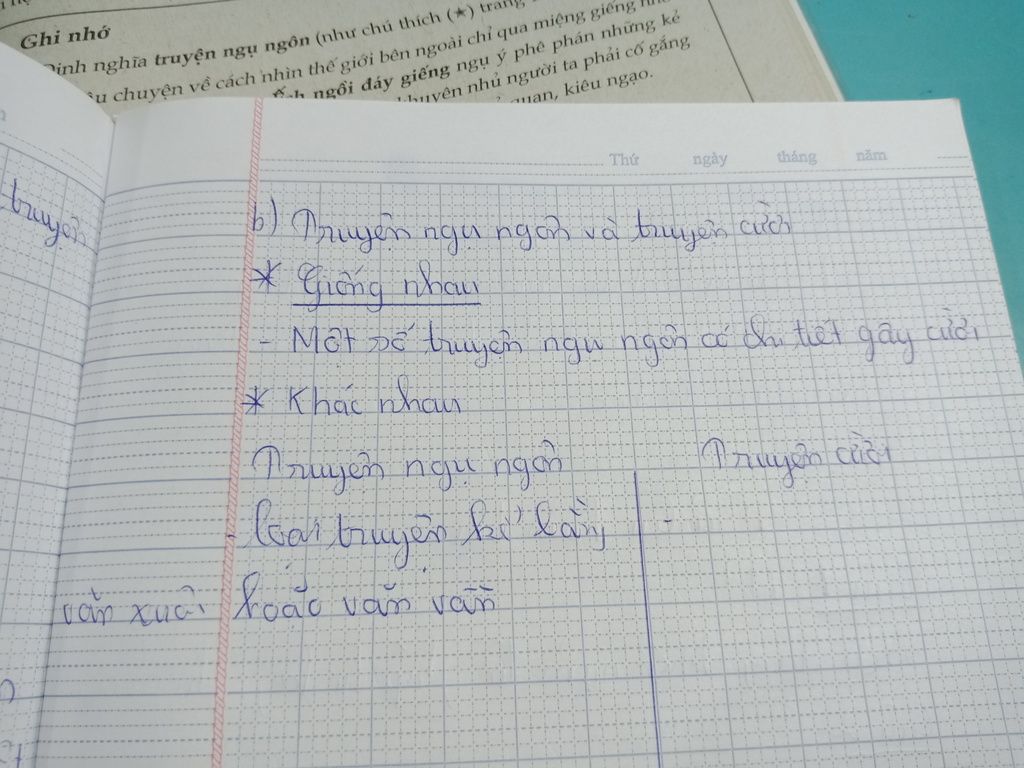 Ghi nhớ
Định nghĩa truyện ngụ ngôn (như chú thích (★) trang
chuyện về cách nhìn thế giới bên ngoài chỉ qua miệng giếng nhỏ
ngồi đáy giếng ngụ ý phê phán những kẻ
khuyên nhủ người ta phải cố gắng
quan, kiêu ngạo.
Thứ ngày tháng năm
truyện
b) Truyện ngụ ngôn và truyện cười
* Giống nhau
- Một số truyện ngụ ngôn có chi tiết gây cười
* Khác nhau
Truyện ngụ ngôn
Truyện cười
- loại truyện kể bằng
-
văn xuôi hoặc văn vần